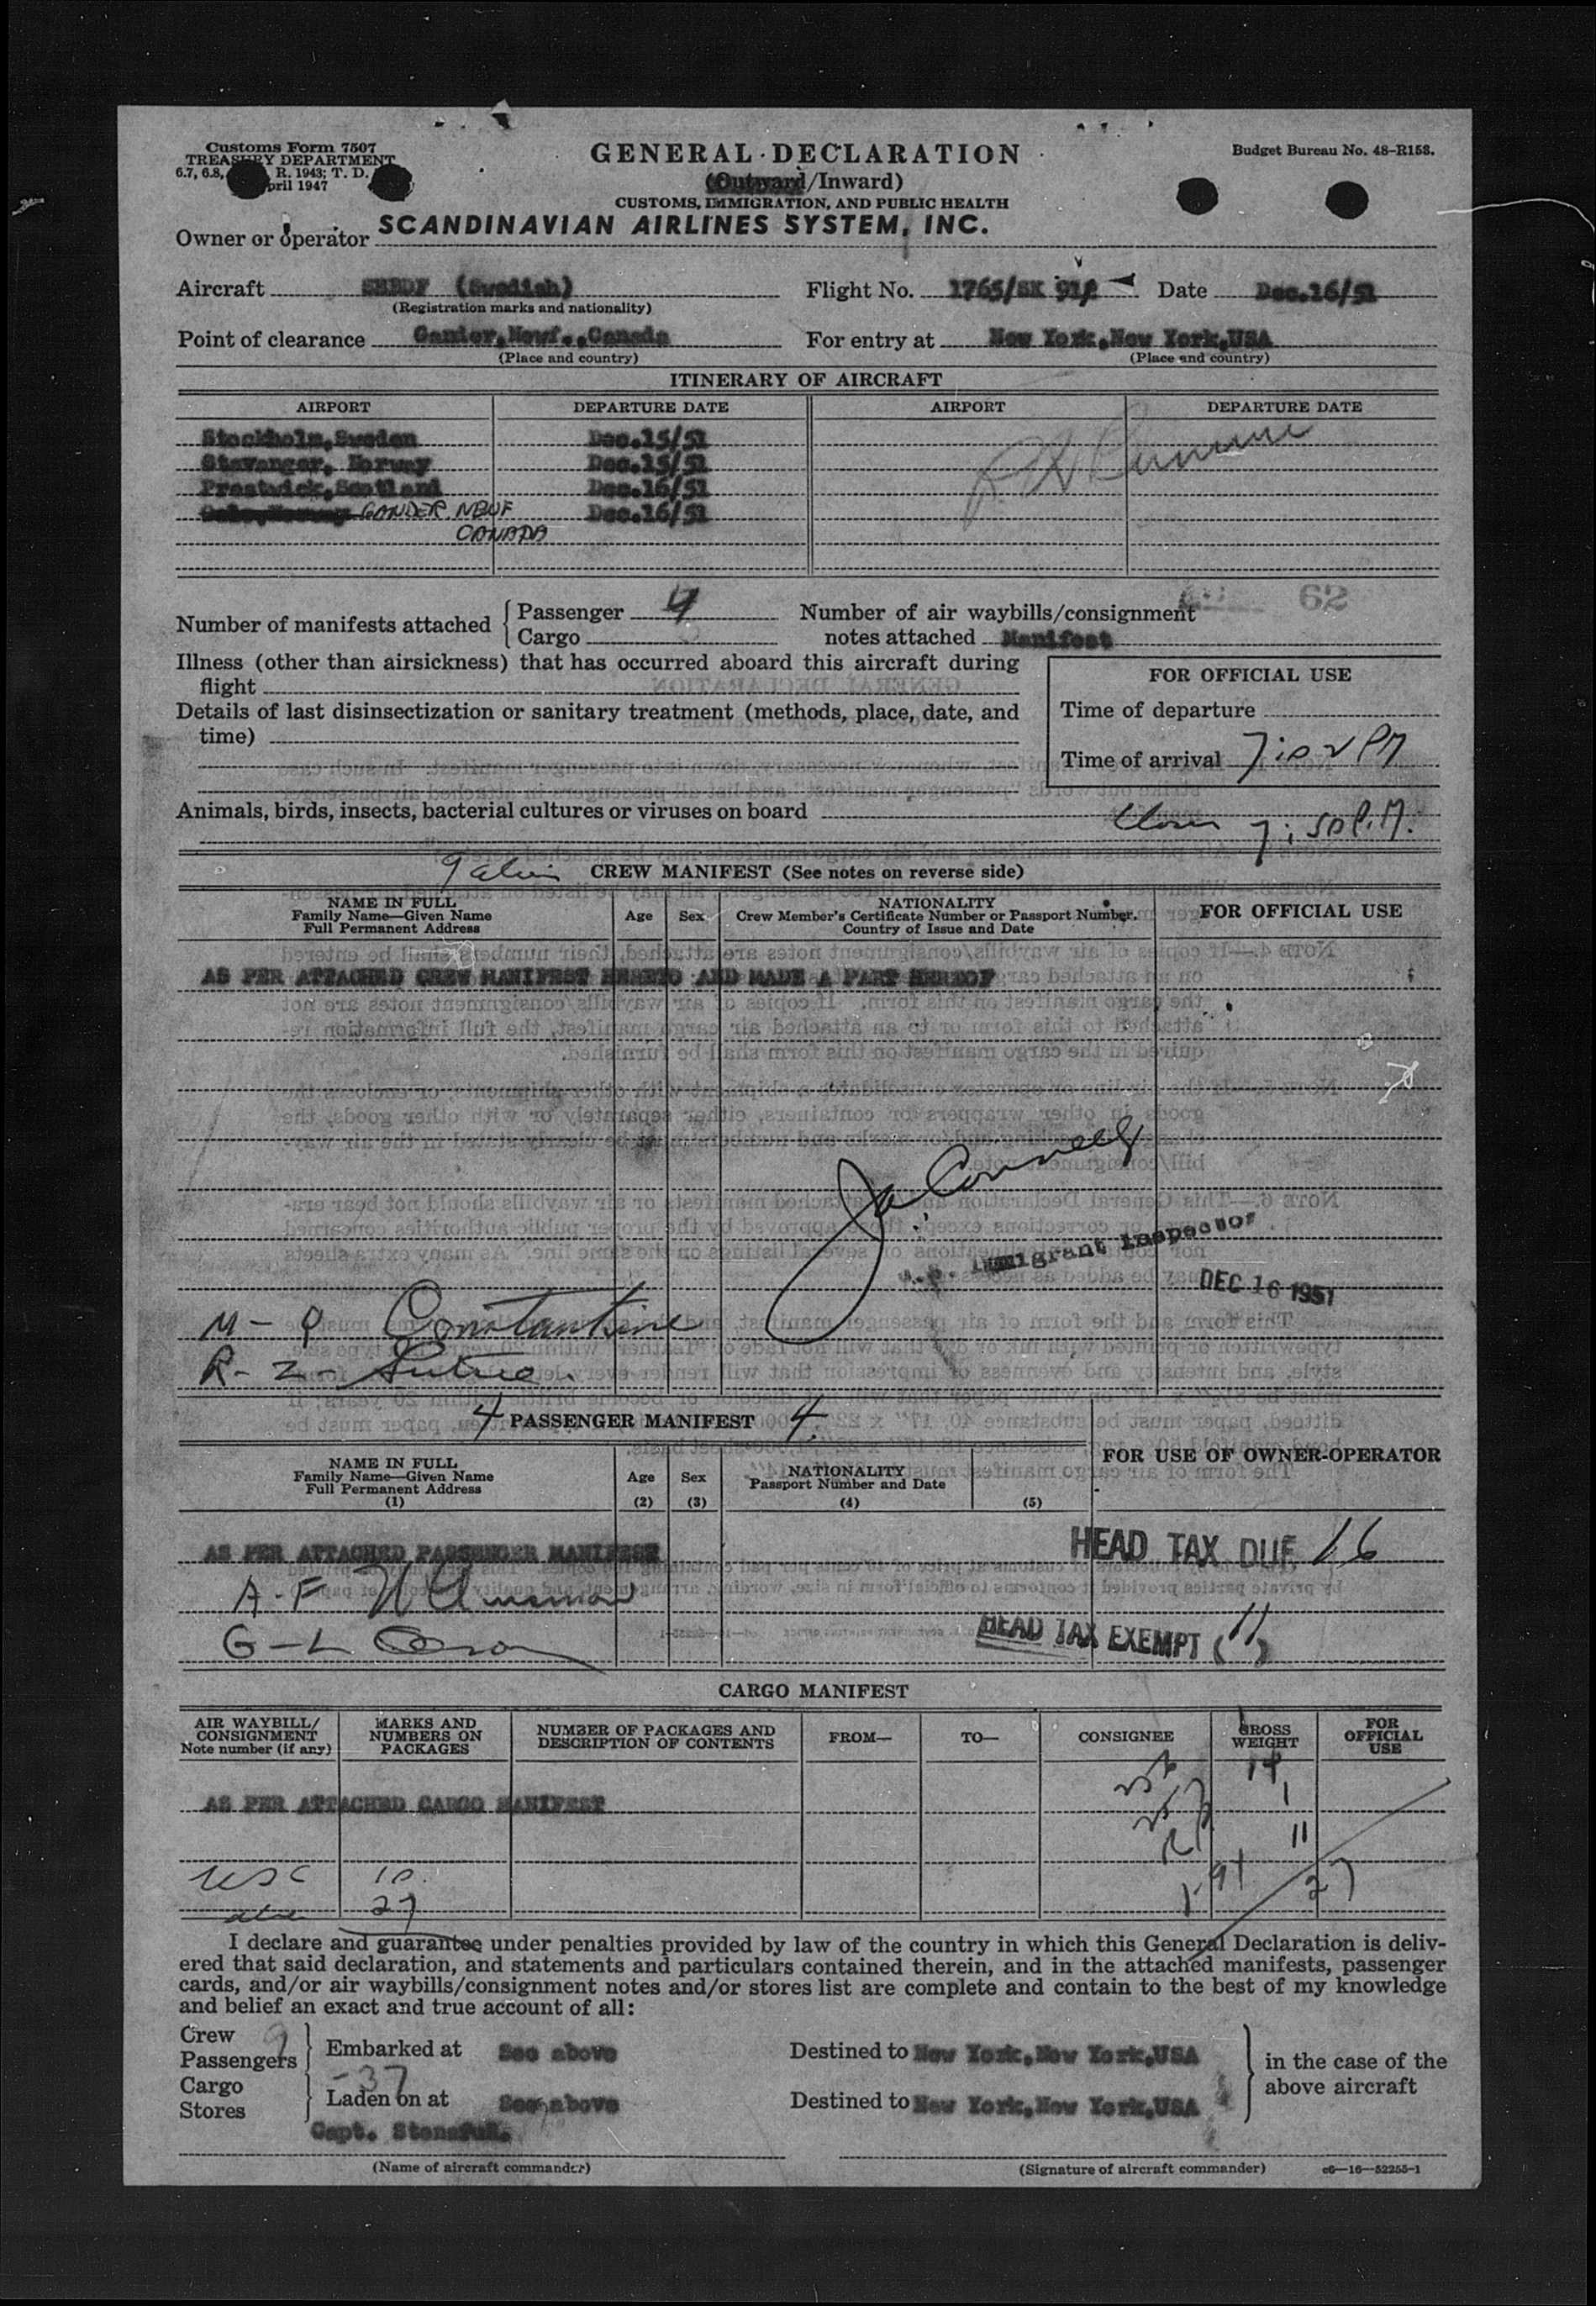 Customs Form 7507
TREASURY DEPARTMENT
6.7, 6.8, R. 1943; T. D.
April 1947
GENERAL DECLARATION
(Outward/Inward)
CUSTOMS, IMMIGRATION, AND PUBLIC HEALTH
Budget Bureau No. 48-R158.
Owner or operator SCANDINAVIAN AIRLINES SYSTEM, INC.
Aircraft (Swedish) Flight No. 1765/SK 912 Date Dec.16/51
(Registration marks and nationality)
Point of clearance Gander,Newf.,Canada For entry at New York,New York,USA
(Place and country) (Place and country)
ITINERARY OF AIRCRAFT
AIRPORT DEPARTURE DATE AIRPORT DEPARTURE DATE
Stockholm,Sweden Dec.15/51
Stavanger, Norway Dec.15/51
Prestwick,Scotland Dec.16/51
GANDER NEWF Dec.16/51
CANADA
62
Number of manifests attached { Passenger 4 Number of air waybills/consignment
Cargo notes attached Manifest
Illness (other than airsickness) that has occurred aboard this aircraft during
flight
FOR OFFICIAL USE
Details of last disinsectization or sanitary treatment (methods, place, date, and
time)
Time of departure
Time of arrival 7:02 PM
Animals, birds, insects, bacterial cultures or viruses on board
7:50 P.M.
9 CREW MANIFEST (See notes on reverse side)
NAME IN FULL
Family Name—Given Name
Full Permanent Address
Age Sex
NATIONALITY
Crew Member's Certificate Number or Passport Number,
Country of Issue and Date
FOR OFFICIAL USE
AS PER ATTACHED CREW MANIFEST HERETO AND MADE A PART HEREOF
Immigrant Inspector
DEC 16 1951
M- 9 Constantine
R- 2-
4 PASSENGER MANIFEST 4
NAME IN FULL
Family Name—Given Name
Full Permanent Address
(1)
Age
(2)
Sex
(3)
NATIONALITY
Passport Number and Date
(4)
(5)
FOR USE OF OWNER-OPERATOR
AS PER ATTACHED PASSENGER MANIFEST
HEAD TAX DUE 16
A-F
G-L
HEAD TAX EXEMPT (11)
CARGO MANIFEST
AIR WAYBILL/
CONSIGNMENT
Note number (if any)
MARKS AND
NUMBERS ON
PACKAGES
NUMBER OF PACKAGES AND
DESCRIPTION OF CONTENTS
FROM—
TO—
CONSIGNEE
GROSS
WEIGHT
FOR
OFFICIAL
USE
AS PER ATTACHED CARGO MANIFEST
11
USC 10
27
27
I declare and guarantee under penalties provided by law of the country in which this General Declaration is deliv-
ered that said declaration, and statements and particulars contained therein, and in the attached manifests, passenger
cards, and/or air waybills/consignment notes and/or stores list are complete and contain to the best of my knowledge
and belief an exact and true account of all:
Crew 9
Passengers
Embarked at See above Destined to New York,New York,USA
37
Cargo
Stores
Laden on at See above Destined to New York,New York,USA
in the case of the
above aircraft
Capt.
(Name of aircraft commander) (Signature of aircraft commander) c6—16—52255-1